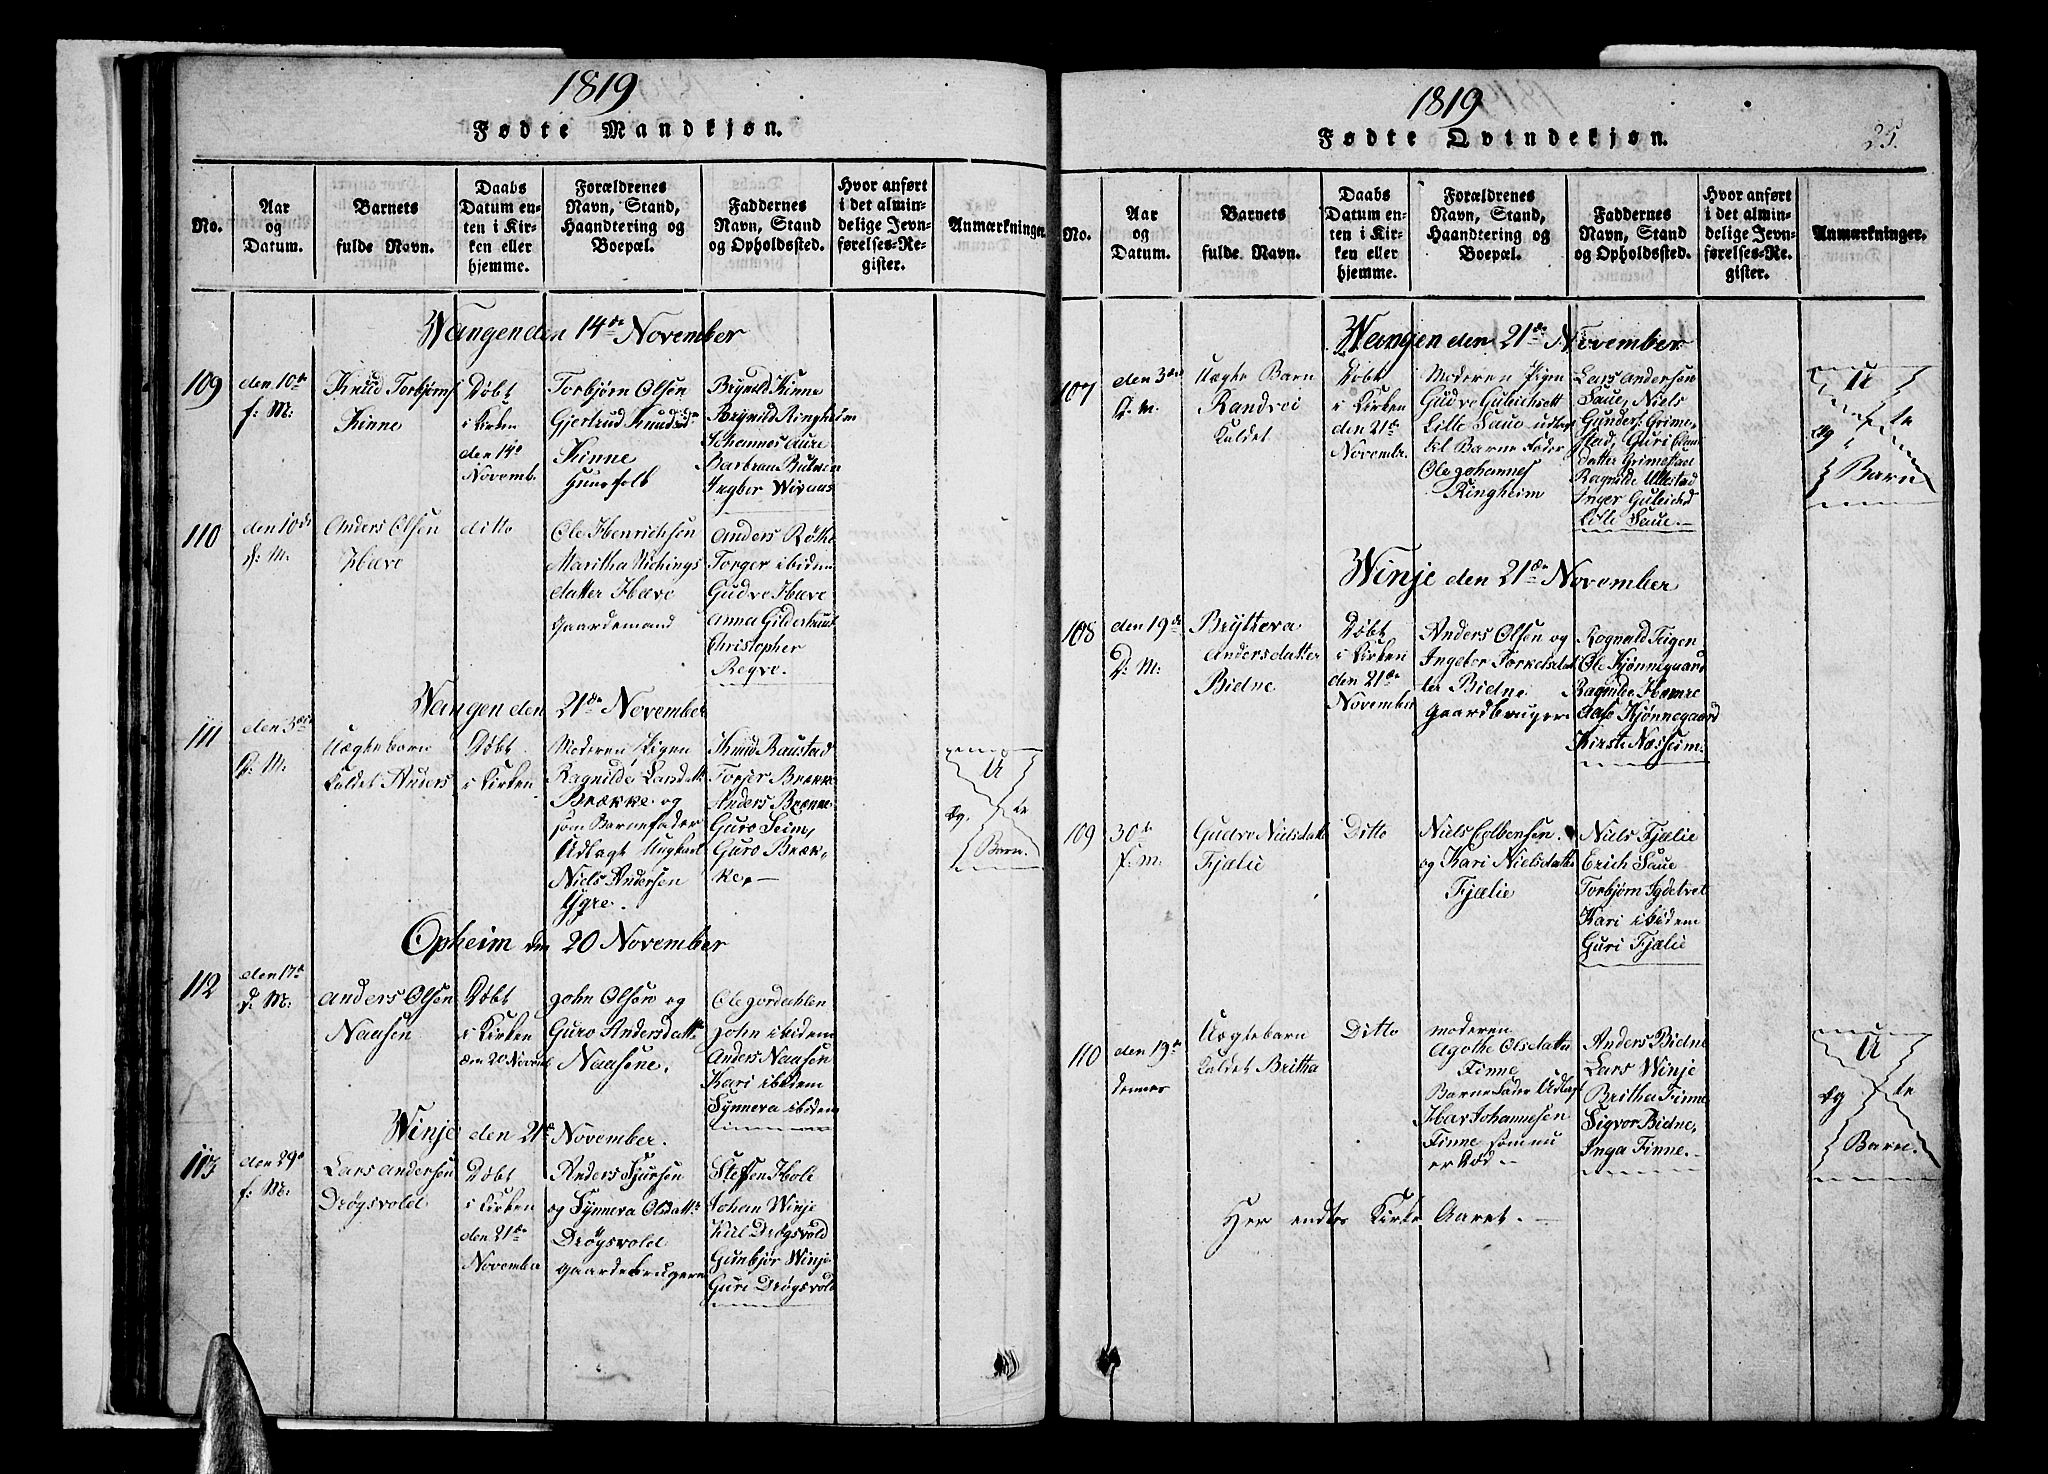 1819
Fødte Mandkjøn.
No.
Aar
og
Datum.
Barnets
fulde Navn.
Daabs
Datum en-
ten i Kir-
ken eller
hjemme.
Forældrenes
Navn, Stand,
Haandtering og
Boepæl.
Faddernes
Navn, Stand
og Opholdssted.
Hvor anført
i det almin-
delige Jevn-
førelses-Re-
gister.
Anmærkninger.
Wangen den 14de November
109
den 10de
f: M:
Knud Torbjørns
Kinne
Døbt
i Kirken
den 14de
Novemb.
Torbjørn Olsen
Gjertrud Knudsd
Kinne
Huusfolk
Brynild Kinne
Brynild Ringheim
Johannes Aure
Barbrau
Ingbor
110
den 10de
f: M:
Anders Olsen
Hæve
ditto
Ole Henrichsen
Maritha
datter Hæve
Gaardemand
Anders Røthe
Torger ibidem
Gudve Hæve
Anna Gilderhuus
Christopher
Regve.
Wangen den 21de November
111
den 3die
D: M:
Uægtebarn
kaldet Anders
Døbt
i Kirken
Moderen Pigen
Ragnilde Larsdatt
Brække og
som Barnefader
Udlagt Ungkarl
Niels Andersen
Ygre.
Knud Raustad
Torjer Brække
Anders Brække
Guro Seim,
Guro Bræk-
ke,
U
æg. te
Barn.
Opheim den 20 November
112
den 17de
D: M:
Anders Olsen
Naasen
Døbt
i Kirken
den 20 Novemb
John Olsen og
Guro Andersdatt
Naasene.
Ole Jordahlen
John ibidem
Anders Naasen
Kari ibidem
Synneva ibidem
Winje den 21de November.
113
den 29de
f: M:
Lars Andersen
Drøgsvold
Døbt
i Kirken
den 21de
November
Anders Sjursen
og Synneva Olsdatt
Drøgsvold
Gaardebrugere
Steffen Hole
Johan Winje
Kiel Drøgsvold
Gunbjør Winje
Guri Drøgsvold
1819
Fødte Qvindekjøn.
25.
No.
Aar
og
Datum.
Barnets
fulde Navn.
Daabs
Datum en-
ten i Kir-
ken eller
hjemme.
Forældrenes
Navn, Stand,
Haandtering og
Boepæl.
Faddernes
Navn, Stand
og Opholdssted.
Hvor anført
i det almin-
delige Jevn-
førelses-Re-
gister.
Anmærkninger.
Wangen den 21de November
107
den 3die
D. M.
Uægte Barn
Randvei
kaldet
Døbt
i Kirken
den 21de
Novembr.
Moderen Pigen
Gudve
Lille Saue udlagt
til Barne Fader
Ole Johannes
Ringheim
Lars Andersen
Saue, Niels
Gunders. Grime-
stad, Guri
datter Grimestad
Ragnilde Ullestad
Inger
Lille Saue.
U
æg te
Barn
Winje den 21de November
108
den 19de
D: M:
Brytteva
Andersdatter
Bidne
Døbt
i Kirken
den 21de
November
Anders Olsen og
Ingebor Torkelsdat
ter Bidne
Gaardbruger
Rognald Teigen
Ole Kjønnegaard
Ragnilde Hemre
Aase Kjønnegaard
Kirste Næsheim.
109
30de
f: m.
Gudve Nielsdatt
Fjælie
Ditto
Niels Colbensen.
og Kari Nielsdatte
Fjælie
Niels Fjælie
Erich Saue
Torbjørn
Kari ibidem
Guri Fjælie
110
den 19de
dennes
Uægtebarn
kaldet Britha
Ditto
Moderen
Agothe Olsdatter
Finne
Barnefader Udlagt
Johannesen
Finne som nu
er død
Anders Bidne
Lars Winje
Britha Finne
Sigvor Bidne,
Inga Finne.
U
æg te
Barn.
Her endtes Kirke Aaret.